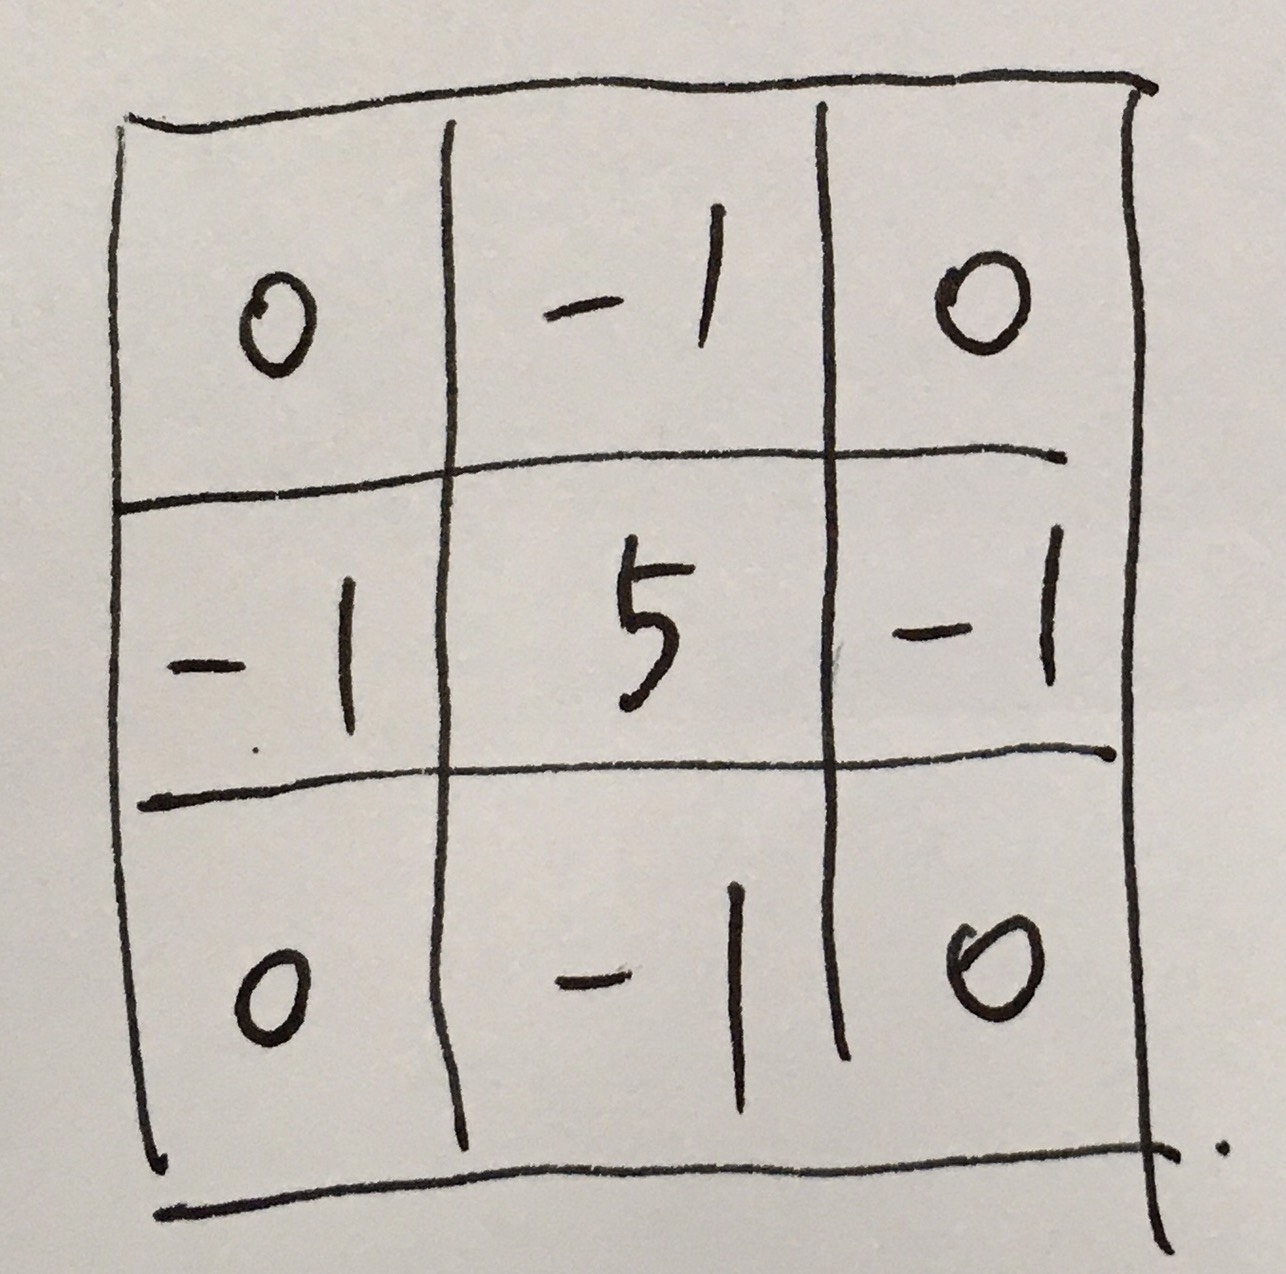 0 -1 0
-1 5 -1
0 -1 0